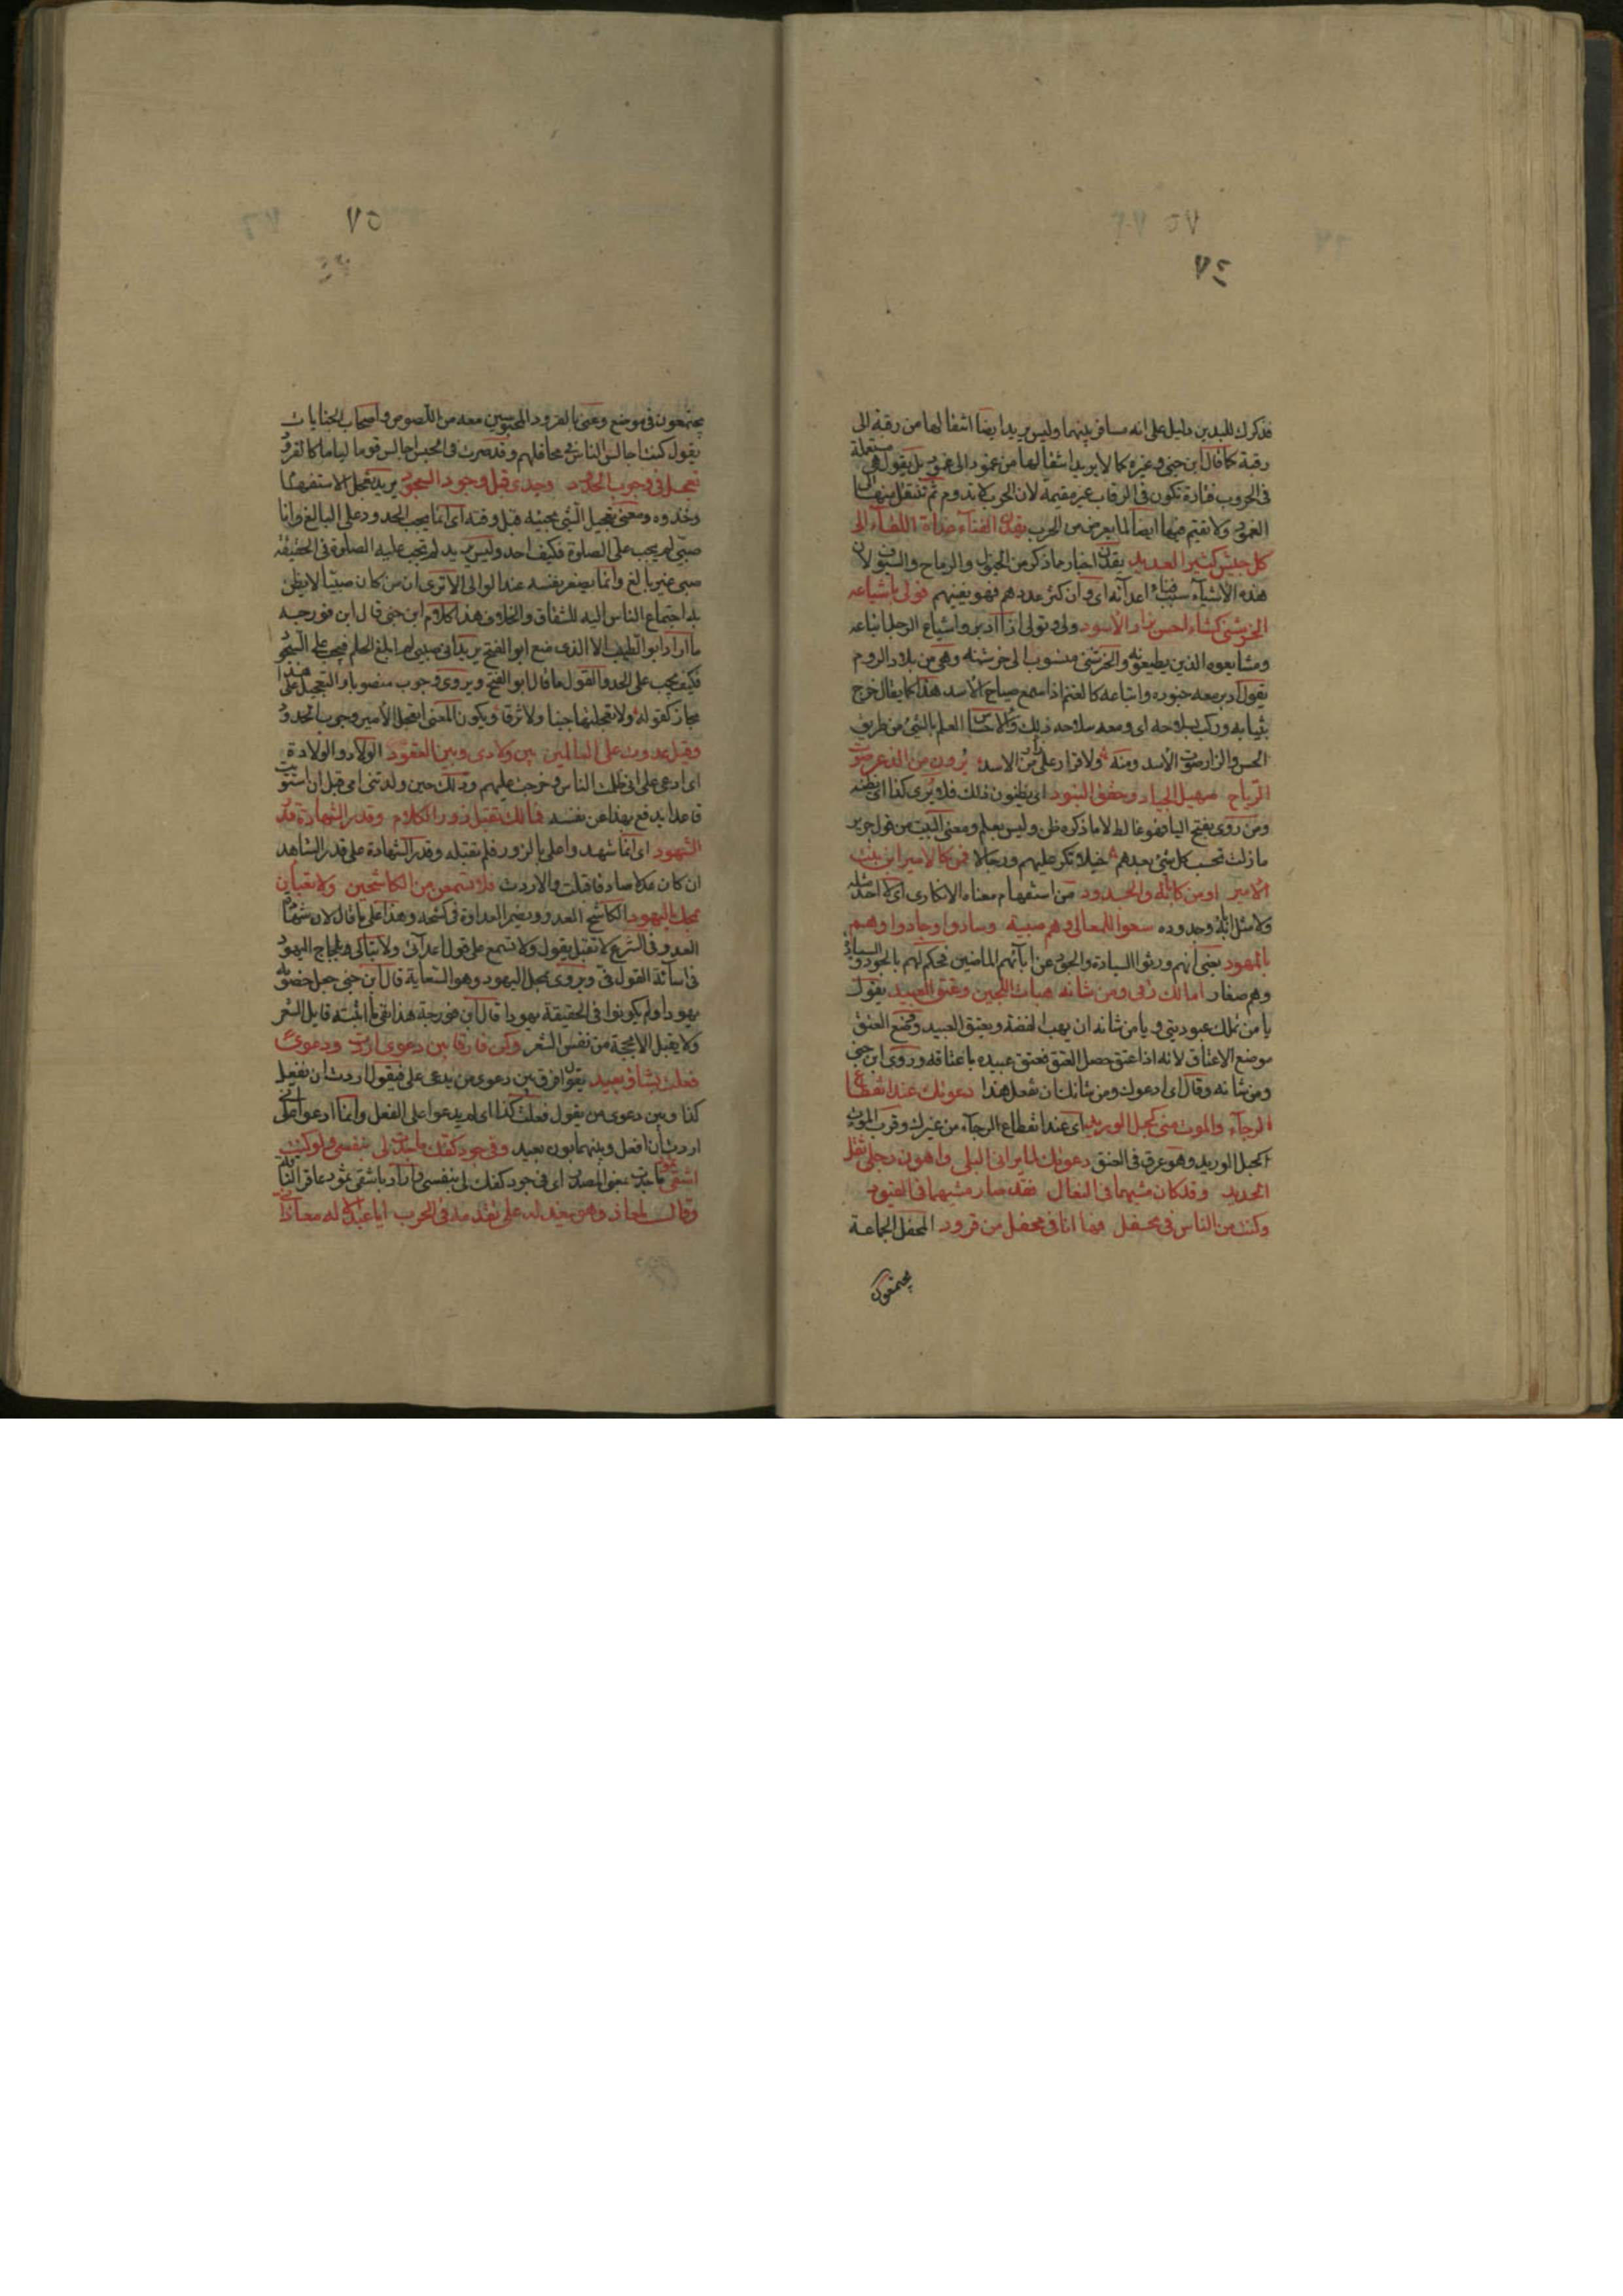 ٧٥
٧٤
فذكرك للبدين دليل على انه مسافر بينهما وليس يريد ايضا انتقالها من رقبة الى
رقبة كما قال ابن جنى وغيره كما لا يريد انتقالها من غمود الى غمود بل يقول هى مستعملة
فى الحروب فتارة تكون فى الرقاب غير مقيمة لان الحرب لا تدوم ثم تنتقل منها الى
الغمود ولا تقيم فيها ايضا لما يعرض من الحرب يقدن الفناء غداة اللقاء الى
كل جيش كثير العديد يقدن اخبار عما ذكر من الخيول والرماح والسيوف لان
هذه الاشياء سبب فناء اعدائه اى وان كثر عددهم فهو يفنيهم فولى باشياعه
الخرشنى كشاء احس بزار الاسود ولى وتولى اذا ادبر واشياع الرجل اتباعه
ومشايعوه الذين يطيعونه والخرشنى منسوب الى خرشنه وهى من بلاد الروم
يقول ادبر معه جنوده واتباعه كالغنم اذا سمع صياح الاسد هذا كما يقال خرج
بثيابه وركب بسلاحه اى ومعه سلاحه ذلك والاحساس العلم بالشئ من طريق
الحس والزار صوت الاسد ومنه ولا قرار على زار من الاسد يرون من الذعر صوت
الرياح صهيل الجياد وخفق البنود اى يظنون ذلك فلا يرى كذا اى يظنه
ومن روى بفتح اليا فهو غالط لان ما ذكره ظن وليس بعلم ومعنى البيت من قول جرير
ما زلت تحسب كل شئ بعدهم خيلا تكر عليهم ورجالا فمن كالامير ابن بنت
الامير او من كابائه والجدود من استفهام معناه الانكار اى لا احد مثله
ولا مثل ابائه وجدوده سعوا للمعالى وهم صبية وسادوا وجادوا وهم
بالمهود يعنى انهم ورثوا السيادة والجود عن ابائهم الماضين فحكم لهم بالجود والسيادة
وهم صغار امالك رقى ومن شانه هبات اللجين وعتق العبيد يقول
يا من تملك عبوديتى ويا من شانه ان يهب الفضة ويعتق العبيد ووضع العتق
موضع الاعتاق لانه اذا عتق حصل العتق فعتق عبيده باعتاقه وروى ابن جنى
ومن شانه وقال اى ادعوك ومن شانك ان تفعل هذا دعوتك عند انقطاع
الرجاء والموت منى كحبل الوريد اى عند انقطاع الرجاء من غيرك وقرب الموت
كحبل الوريد وهو عرق فى العنق دعوتك لما برانى البلى واوهن رجلى ثقل
الحديد وقد كان مشيهما فى النعال فقد صار مشيهما فى القيود
وكنت من الناس فى محفل فها انا فى محفل من قرود المحفل الجماعة
يجتمعون
٧٥
يجتمعون فى موضع وعنى بالقرود المحبوسين معه من اللصوص واصحاب الجنايات
يقول كنت اجالس الناس فى محافلهم وقد صرت فى الحبس اجالس قوما لياما كالقرود
تعجل فى وجوب الحدود وحدى قبل وجوب السجود يريد تعجل الاستفهام
وحذفه ومعنى تعجيل الشئ مجيئه قبل وقته اى انما يجب الحدود على البالغ وانا
صبى لم يجب على الصلوة فكيف احد وليس يريد لم تجب عليه الصلوة فى الحقيقة
صبى غير بالغ وانما يصغر نفسه عند الوالى الا ترى ان من كان صبيا لا يظن
به اجتماع الناس اليه للشقاق والخلاف هذا كلام ابن جنى قال ابن فورجه
ما اراد ابو الطيب الا الذى منع ابو الفتح يريد انى صبى لم ابلغ الحلم فيجب على السجود
فكيف يجب على الحد والقول ما قال ابو الفتح ويروى وجوب منصوبا والتعجيل هذا على
مجاز كقوله ولا تعجلتها جبنا ولا فرقا ويكون المعنى اتعجل الامير وجوب الحدود
وقيل عدوت على العالمين بين ولادى وبين القعود الولاد والولادة
اى ادعى على انى ظلمت الناس وخرجت عليهم وذلك حين ولدتنى امى قبل ان استويت
قاعدا يدفع بهذا عن نفسه فمالك تقبل زور الكلام وقدر الشهادة قدر
الشهود اى انما شهد واعلى بالزور فلم تقبله وقدر الشهادة على قدر الشاهد
ان كان عدلا صادقا قبلت والا ردت فلا تسمعن من الكاشحين ولا تعبأن
بمحك اليهود الكاشح العدو ويضمر العداوة فى كشحه وهذا على ما قال لان شهادة
العدو فى الشرع لا تقبل يقول ولا تسمع على قول اعدائى ولا تبالى بلجاج اليهود
فى اساءة القول فى ويروى بمحل اليهود وهو السعاية قال ابن جنى جعل خصومه
يهودا ولم يكونوا فى الحقيقة يهودا قال ابن فورجة هذا نفى ما اثبته قايل الشعر
ولا يقبل الا بحجة من نفس الشعر وكن فارقا بين دعوى اردت ودعوى
فعلت بشاو بعيد يقول افرق بين دعوى من يدعى على فيقول اردت ان تفعل
كذا وبين دعوى من يقول فعلت كذا اى لم يدعوا على الفعل وانما ادعوا على انى
اردت ان افعل وبينهما بون بعيد وفى جود كفيك ما جدت لى بنفسى ولو كنت
اشقى ثمود ما جدت بمعنى المصدر اى فى جود كفك لى بنفسى واراد باشقى ثمود عاقر الناقة
وقال لمعاذ وهو يعذله على تقدمه فى الحرب ايا عبد الاله معاذ انى